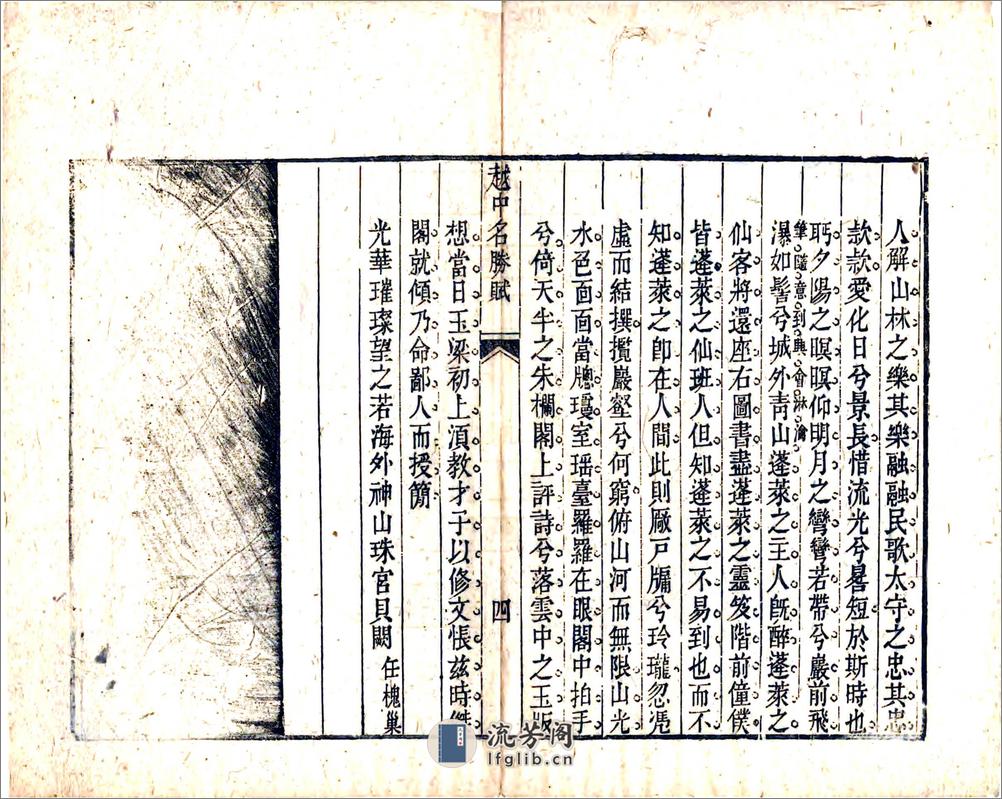 人解山林之樂其樂融融民歌太守之忠其忠
款款愛化日兮景長惜流光兮晷短於斯時也
眄夕陽之暝暝仰明月之彎彎若帶兮巖前飛
筆隨意到興會淋漓
瀑如髻兮城外青山蓬萊之主人旣醉蓬萊之
仙客將還座右圖書盡蓬萊之靈笈階前僮僕
皆蓬萊之仙班人但知蓬萊之不易到也而不
知蓬萊之卽在人間此則厰戸牖兮玲瓏忽凴
虛而結撰攬巖壑兮何窮俯山河而無限山光
水色面面當牕瓊室瑶臺羅羅在眼閣中拍手
兮倚天半之朱欄閣上評詩兮落雲中之玉版
越中名勝賦
四
想當日玉梁初上湏教才子以修文悵兹時傑
閣就傾乃命鄙人而授簡
光華璀璨望之若海外神山珠宮貝闕 任槐巢
流芳阁
lfglib.cn